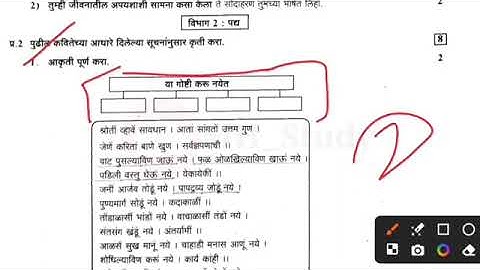 2) तुम्ही जीवनातील अपयशाशी सामना कसा केला ते सोदाहरण तुमच्या भाषेत लिहा. 2
विभाग 2 : पद्य
प्र.2 पुढील कवितेच्या आधारे दिलेल्या सूचनांनुसार कृती करा. 8
1. आकृती पूर्ण करा. 2
या गोष्टी करू नयेत
श्रोतीं व्हावें सावधान । आतां सांगतों उत्तम गुण ।
जेणें करितां बाणे खुण । सर्वज्ञपणाची ।।
वाट पुसल्याविण जाऊं नये । फळ ओळखिल्याविण खाऊं नये ।
पडिली वस्तु घेऊं नये । येकायेकीं ।।
जनीं आर्जव तोडूं नये । पापद्रव्य जोडूं नये ।
पुण्यमार्ग सोडूं नये । कदाकाळीं ।।
तोंडाळासीं भांडों नये । वाचाळासीं तंडों नये ।
संतसंग खंडूं नये । अंतर्यामीं ।।
आळसें सुख मानूं नये । चाहाडी मनास आणूं नये ।
शोधिल्याविण करूं नये । कार्य कांहीं ।।
2